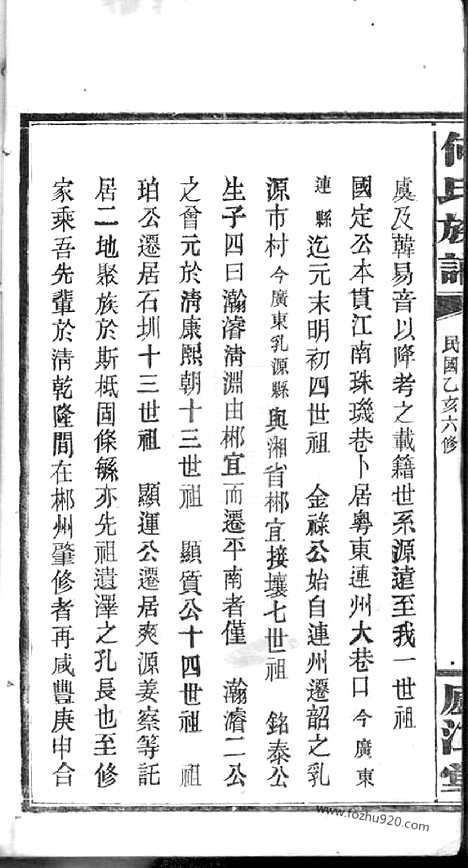 何氏族譜
民國乙亥六修
廬江堂
虞及韓易音以降考之載籍世系源遠至我一世祖
國定公本貫江南珠璣巷卜居粵東連州大巷口今廣東
連縣迄元末明初四世祖　金祿公始自連州遷韶之乳
源市村今廣東乳源縣與湘省郴宜接壤七世祖　銘泰公
生子四曰瀚濬清淵由郴宜而遷平南者僅　瀚濬二公
之曾元於清康熙朝十三世祖　顯質公十四世祖　祖
珀公遷居石圳十三世祖　顯運公遷居爽源姜察等託
居二地聚族於斯柢固條繇亦先祖遺澤之孔長也至修
家乘吾先輩於清乾隆間在郴州肇修者再咸豐庚申合
www.fozhu920.com